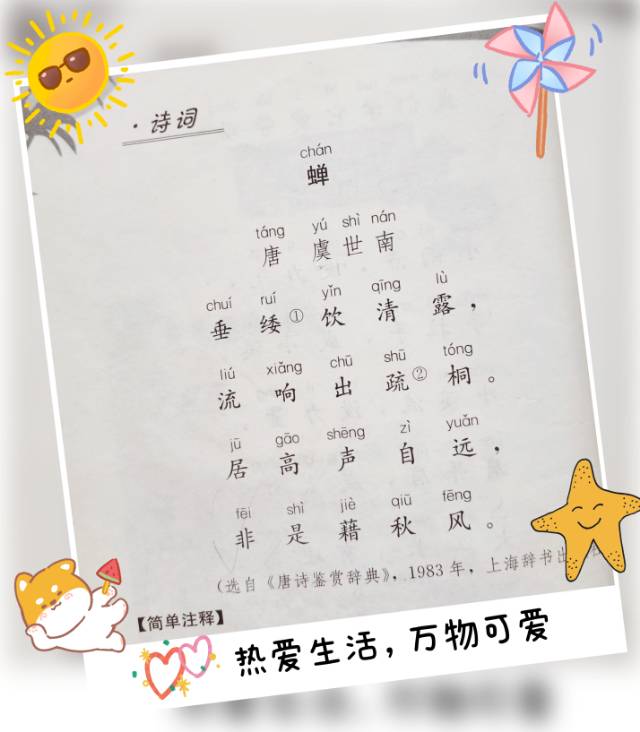 ·诗词
chán
蝉
táng yú shì nán
唐 虞世南
chuí ruí yǐn qīng lù
垂 緌① 饮 清 露，
liú xiǎng chū shū tóng
流 响 出 疏② 桐。
jū gāo shēng zì yuǎn
居 高 声 自 远，
fēi shì jiè qiū fēng
非 是 藉 秋 风。
（选自《唐诗鉴赏辞典》，1983年，上海辞书出
【简单注释】
热爱生活，万物可爱